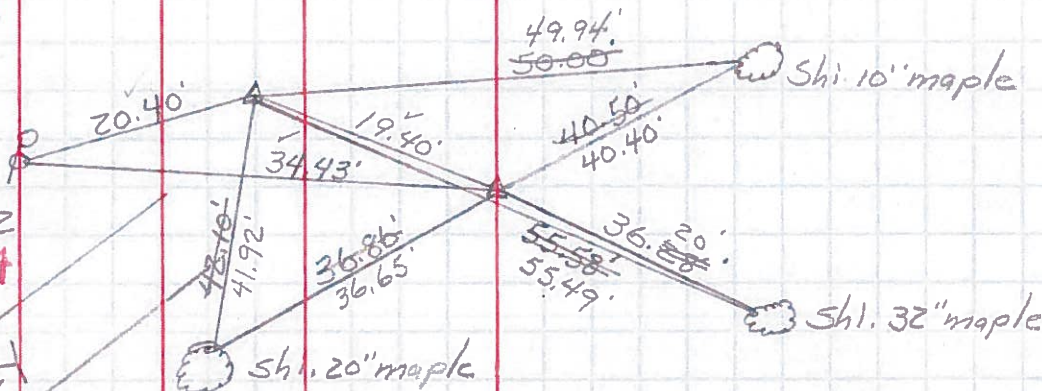 49.94'
50.00'
Shi. 10" maple
20.40'
19.40'
40.50'
40.40'
34.43'
42.10'
41.92'
36.86'
36.65'
55.58'
55.49'
36.20'
Shi. 32" maple
Shi. 20" maple